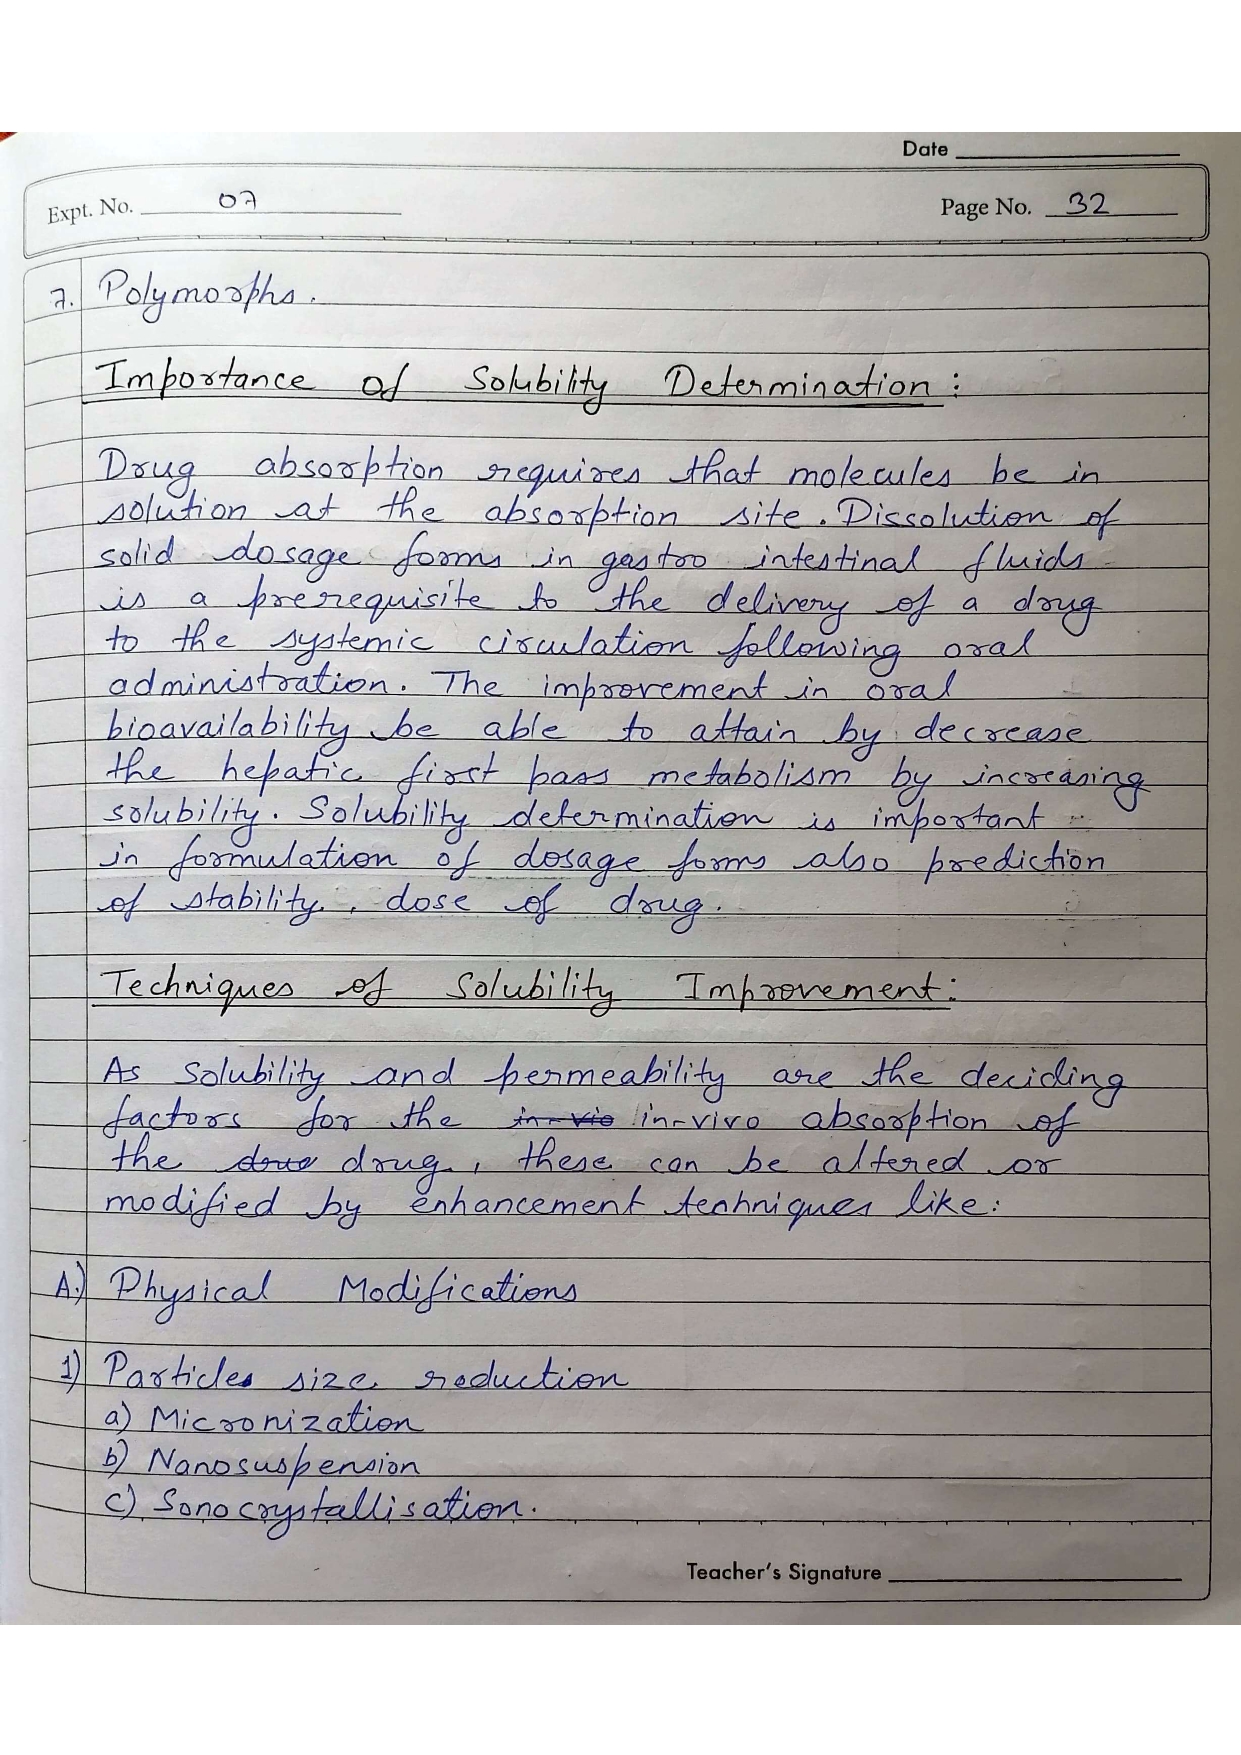 Date
Expt. No. 07 Page No. 32
7. Polymorphs.
Importance of Solubility Determination:
Drug absorption requires that molecules be in
solution at the absorption site. Dissolution of
solid dosage forms in gastro intestinal fluids
is a prerequisite to the delivery of a drug
to the systemic circulation following oral
administration. The improvement in oral
bioavailability be able to attain by decrease
the hepatic first pass metabolism by increasing
solubility. Solubility determination is important
in formulation of dosage forms also prediction
of stability, dose of drug.
Techniques of Solubility Improvement:
As solubility and permeability are the deciding
factors for the in-vio in-vivo absorption of
the drug, these can be altered or
modified by enhancement tenhniques like:
A.) Physical Modifications
1) Particles size reduction
a) Micronization
b) Nanosuspension
c) Sonocrystallisation.
Teacher's Signature